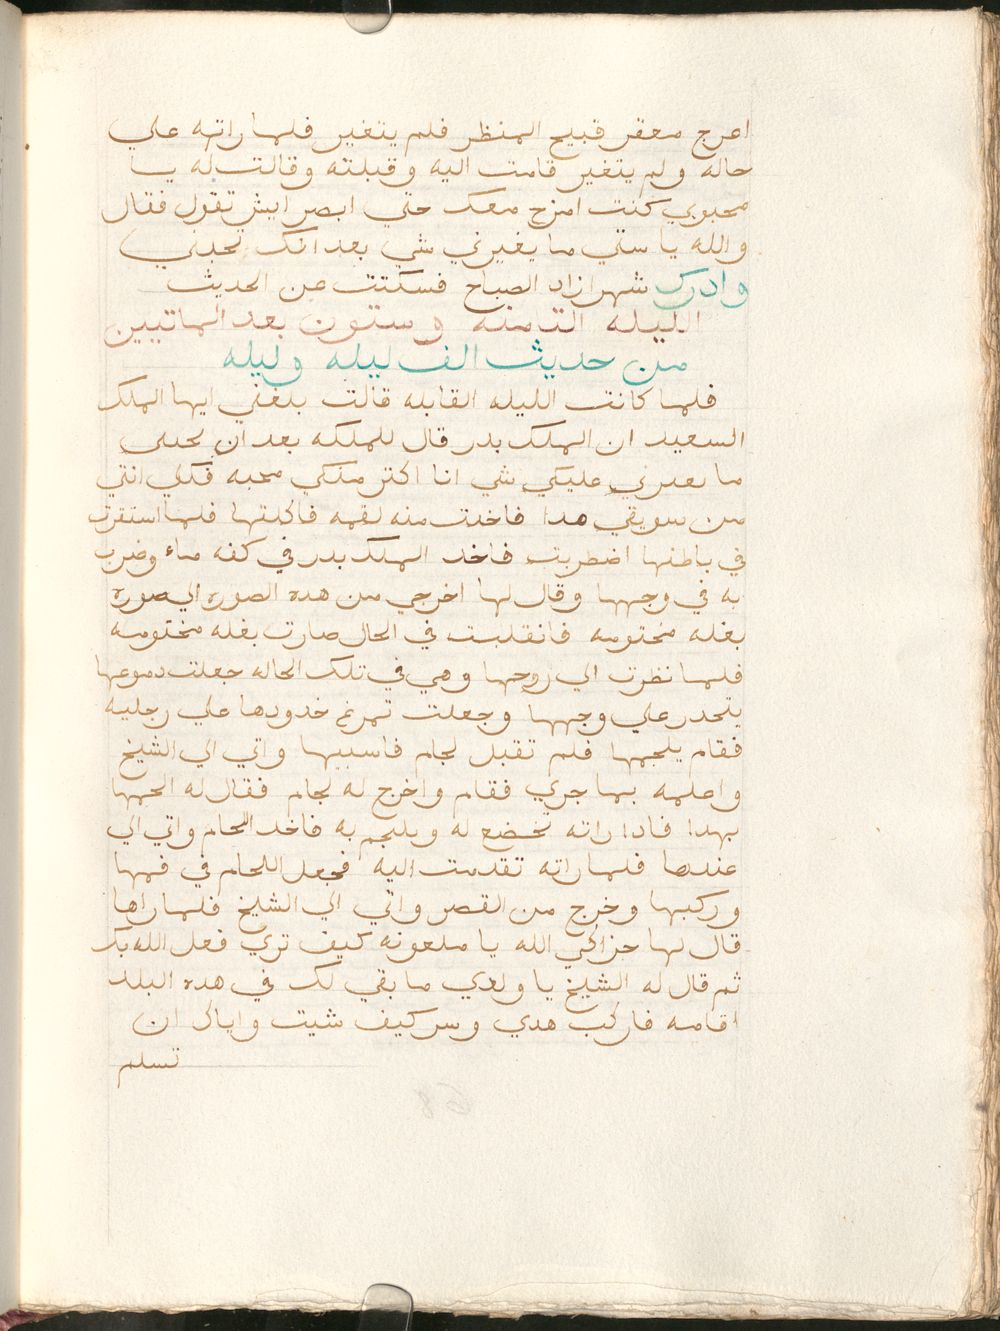 اعرج معقر قبيح المنظر فلم يتغير فلما راته علي
حاله ولم يتغير قامت اليه وقبلته وقالت له يا
محبوبي كنت امزح معك حتي ابصر ايش تقول فقال
والله يا ستي ما يغيرني شي بعد انك تحبني
وادرك شهرازاد الصباح فسكتت عن الحديث
الليله التامنه وستون بعد الماتيين
من حديث الف ليله وليله
فلما كانت الليله القابله قالت بلغني ايها الملك
السعيد ان الملك بدر قال للملكه بعد ان تحبني
ما يغيرني عليكي شي انا اكتر منكي محبه فكلي انتي
من سويقي هدا فاخدت منه لقمه فاكلتها فلما استقرت
في باطنها اضطربت فاخد الملك بدر في كفه ماء وضرب
به في وجهها وقال لها اخرجي من هده الصوره الي صوره
بغله مختومه فانقلبت في الحال صارت بغله مختومه
فلما نظرت الي روحها وهي في تلك الحاله جعلت دموعها
يتحدر علي وجهها وجعلت تمرغ خدودها علي رجليه
فقام يلجمها فلم تقبل لجام فاسيبها واتي الي الشيخ
واعلمه بما جري فقام واخرج له لجام فقال له الجمها
بهدا فادا راته تخضع له ويلجم به فاخد اللجام واتي الي
عندها فلما راته تقدمت اليه فجعل اللجام في فمها
وركبها وخرج من القصر واتي الي الشيخ فلما راها
قال لها جزاكي الله يا ملعونه كيف تري فعل الله بك
ثم قال له الشيخ يا ولدي ما بقي لك في هده البلد
اقامه فاركب هدي وسر كيف شيت واياك ان
تسلم
68